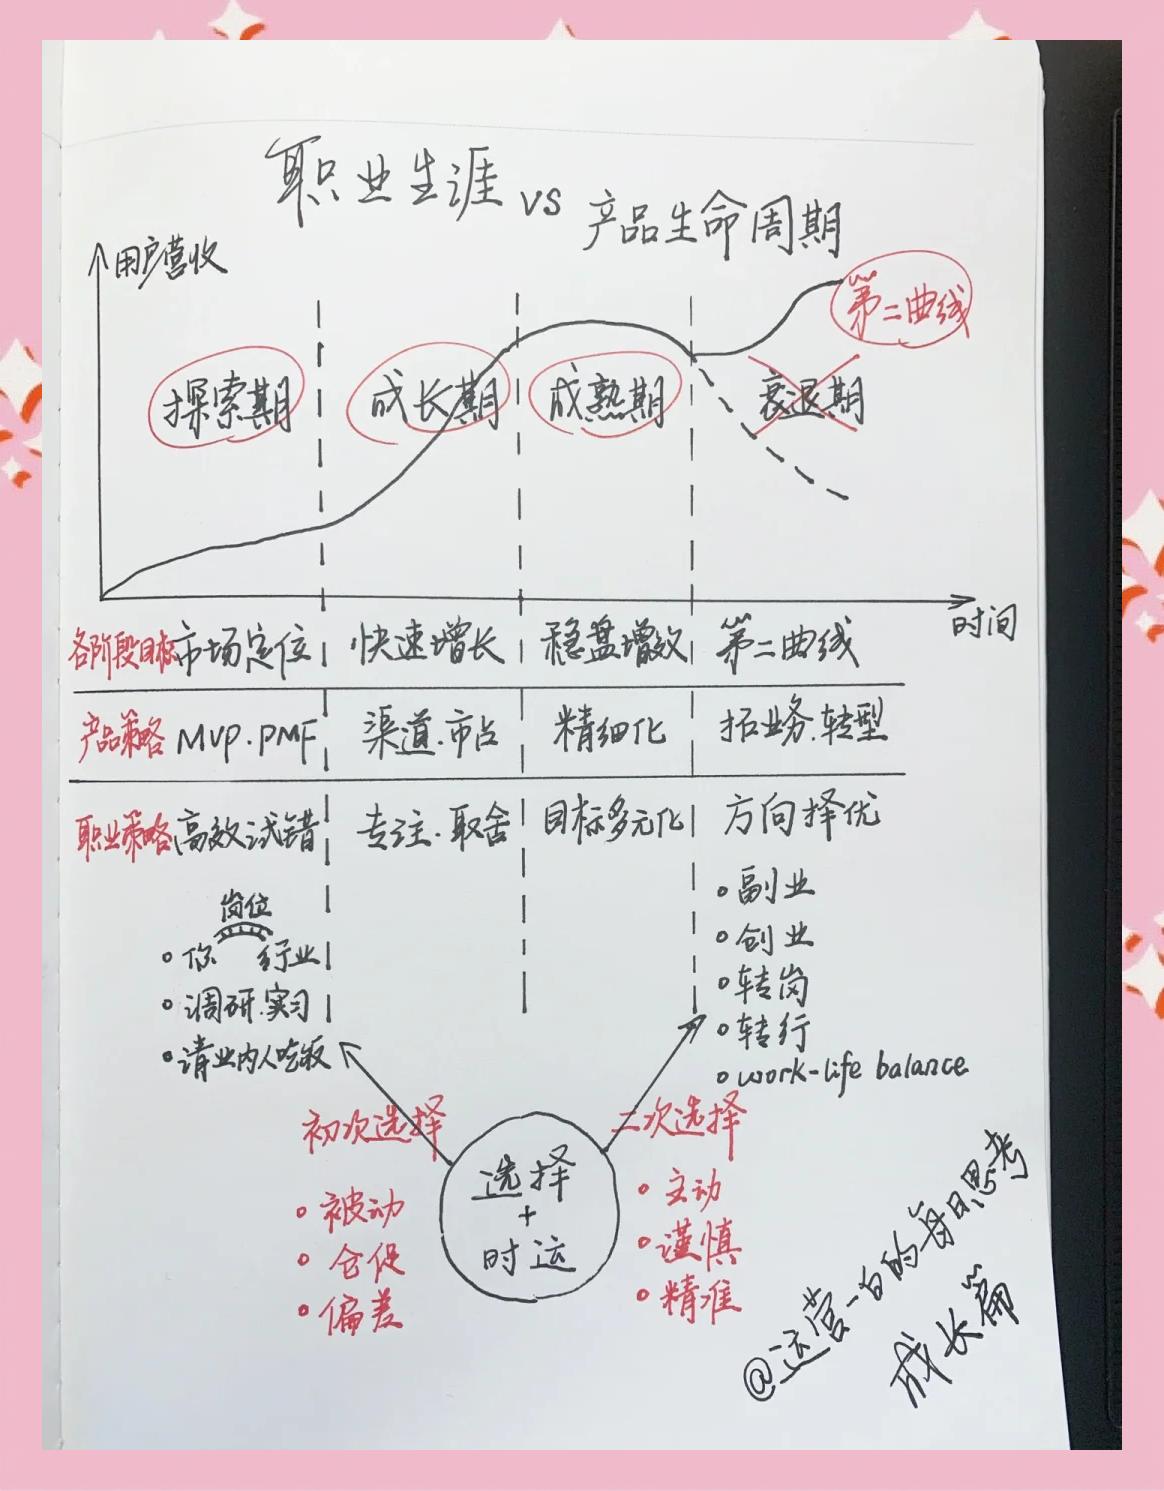 职业生涯 vs 产品生命周期
用户营收
第二曲线
探索期 成长期 成熟期 衰退期
时间
各阶段目标 市场定位 快速增长 稳盘增效 第二曲线
产品策略 MVP.PMF 渠道.市占 精细化 拓业务.转型
职业策略 高效试错 专注.取舍 目标多元化 方向择优
岗位
你 行业
调研.实习
请业内人吃饭
副业
创业
转岗
转行
work-life balance
初次选择
被动
仓促
偏差
选择
+
时运
二次选择
主动
谨慎
精准
@运营一白的每日思考
成长篇